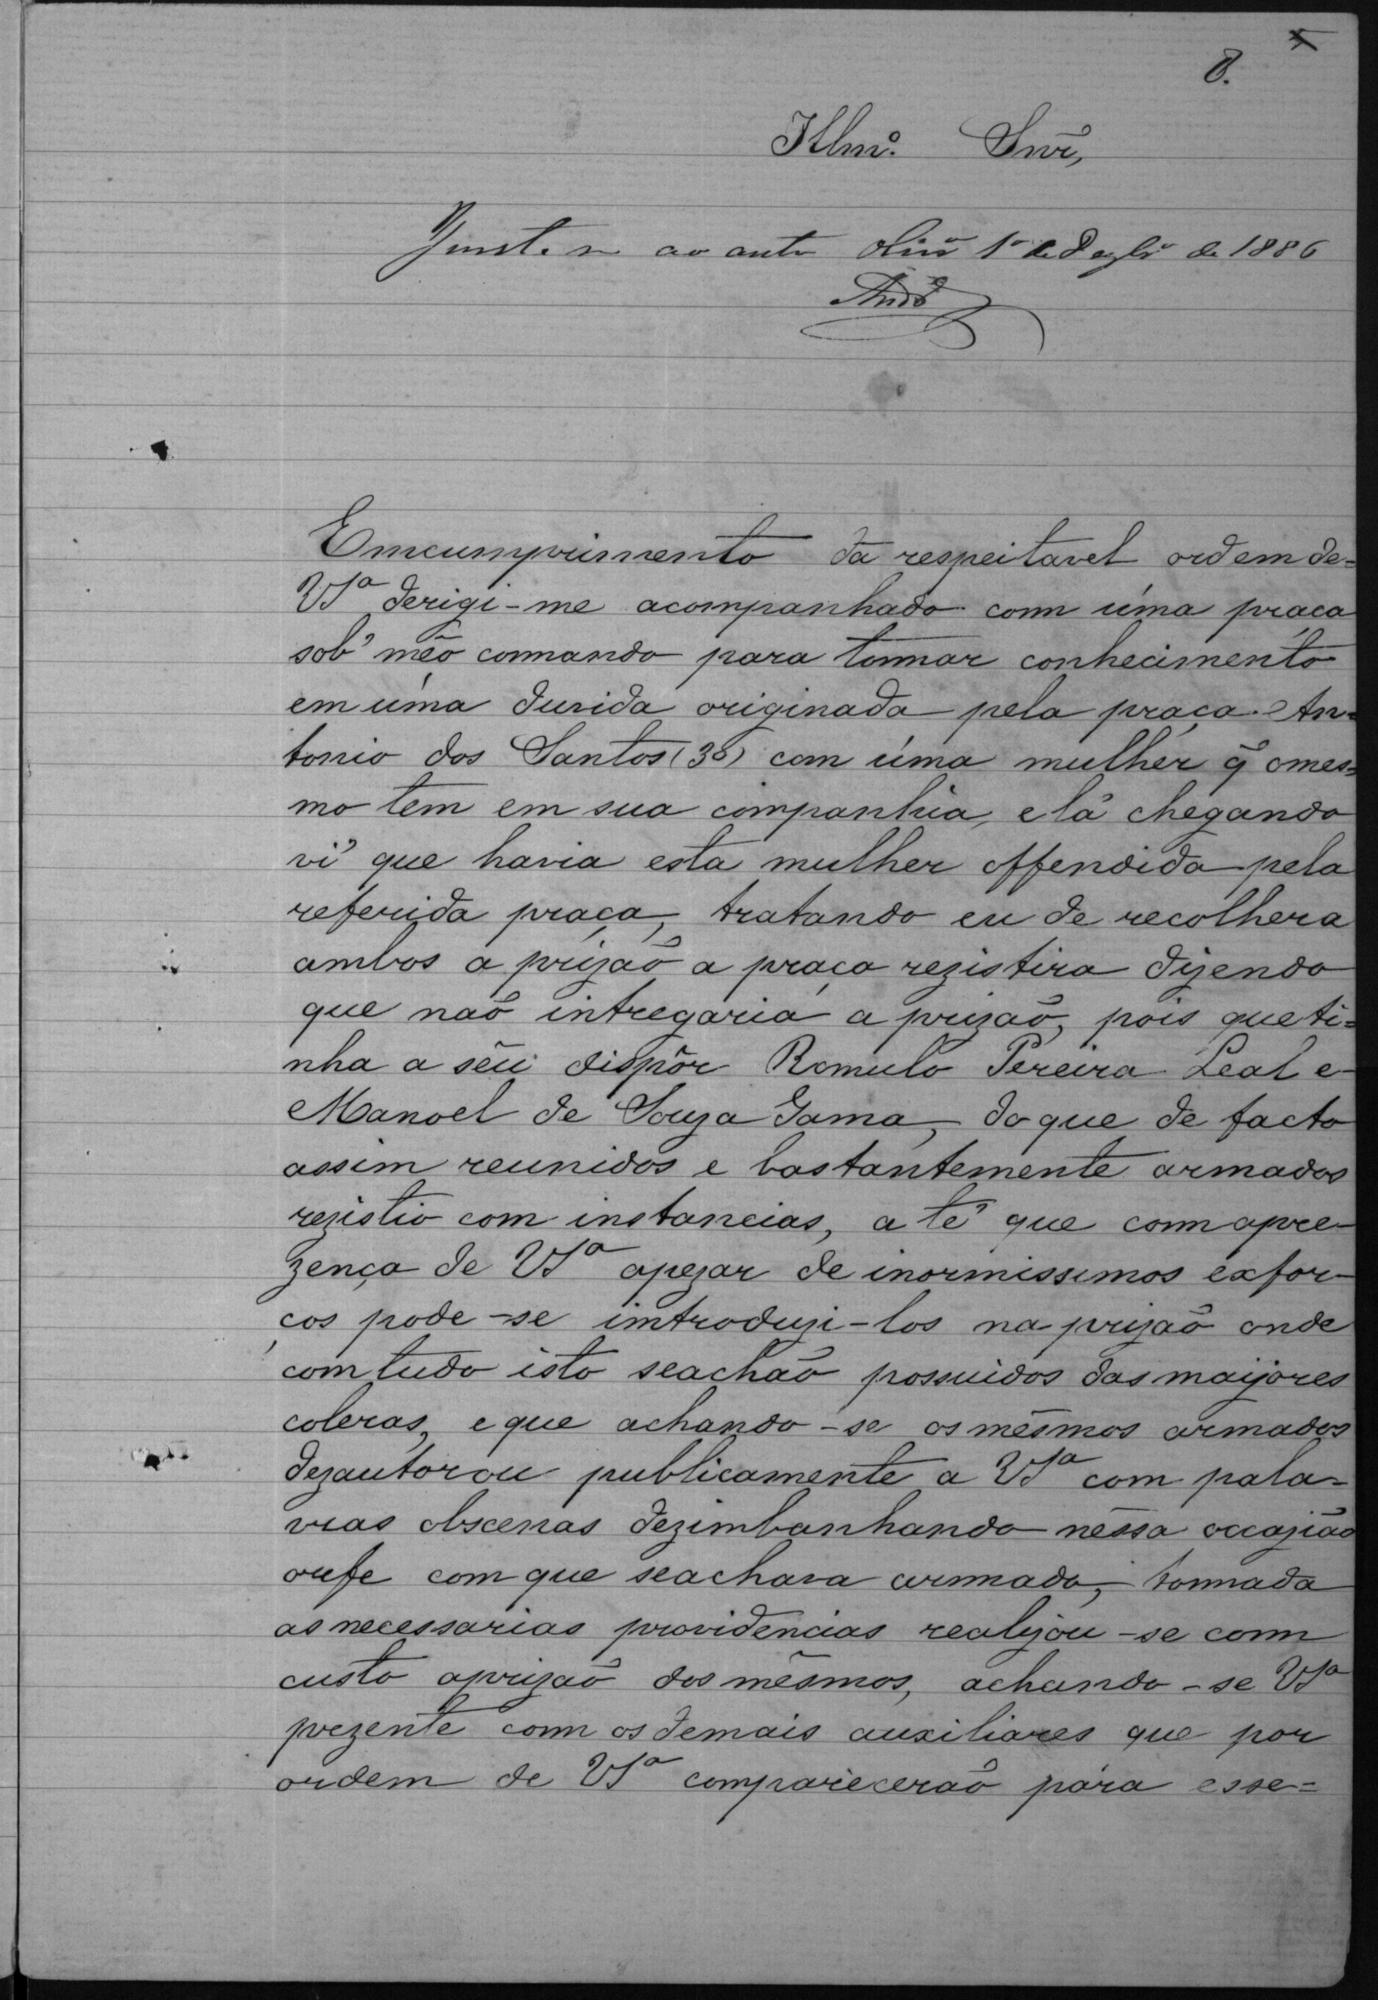 8.
Illmº. Snr̃,
Junte-se ao auto 1º de Dezbrº de 1886
Emcumprimento da respeitavel ordem de=
VSª derigi-me acompanhado com uma praça
sob' mêo commando para tommar conhecimento
em uma duvida originada pela praça An=
tonio dos Santos (3º) com uma mulher q̃ omes=
mo tem em sua companhia, e lá chegando
vi' que havia esta mulher offendida pela
referida praça, tratando eu de recolhera
ambos a prizaõ a praça rezistira dizendo
que naõ intregaria a prizaõ, pois que ti=
nha a sêu dispôr Romulo Pereira Leal e
Manoel de Souza Gama, do que de facto
assim reunidos e bastantemente armados
rezistio com instancias, a té que comm apre-
zença de VSª apezar de inormissimos exfor-
ços pode-se imtroduzi-los na prizaõ onde
com tudo isto seachaõ possuidos das maijores
coleras, e que achando-se os mêsmos armados
dezautorou publicamente a VSª com pala-
vras obscenas dezimbanhando nêssa occaziaõ
orefe com que seachava armado, tommada
as necessarias providencias realizou-se comm
custo aprizaõ dos mêsmos, achando-se VSª
prezente comm os demais auxiliares que por
ordem de VSª compareceraõ para esse=